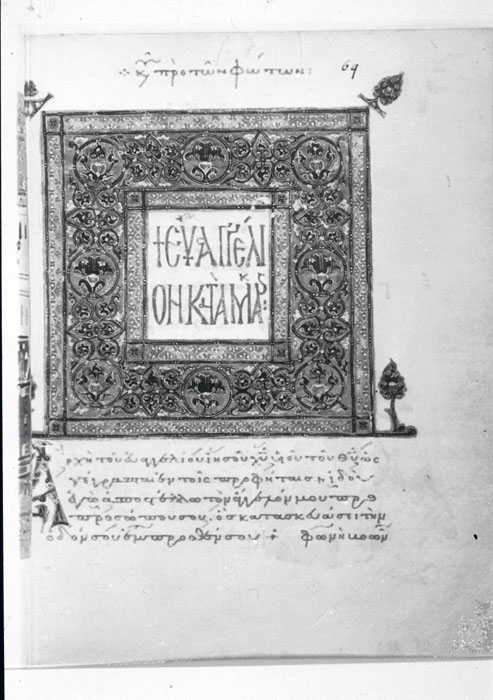 + Κυ προ των φωτων : 64
+ ΕΥΑΓΓΕΛΙ
ΟΝ ΚΑΤΑ ΜΑΡΚ :
Αρχη του ευαγγελιου ιησου χυ υιου του θυ ως
γεγραπται εν τοις προφηταις ιδου
εγω αποστελλω τον αγγελον μου προ
προσωπου σου ος κατασκευασει την
οδον σου εμπροσθεν σου + φωνη βοων